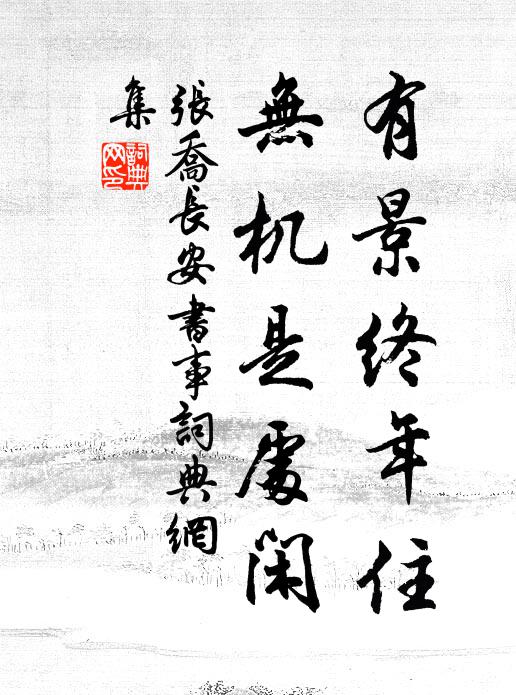 有景终年住
無机是處閑
張喬長安書事詞典網
集
詞典网印